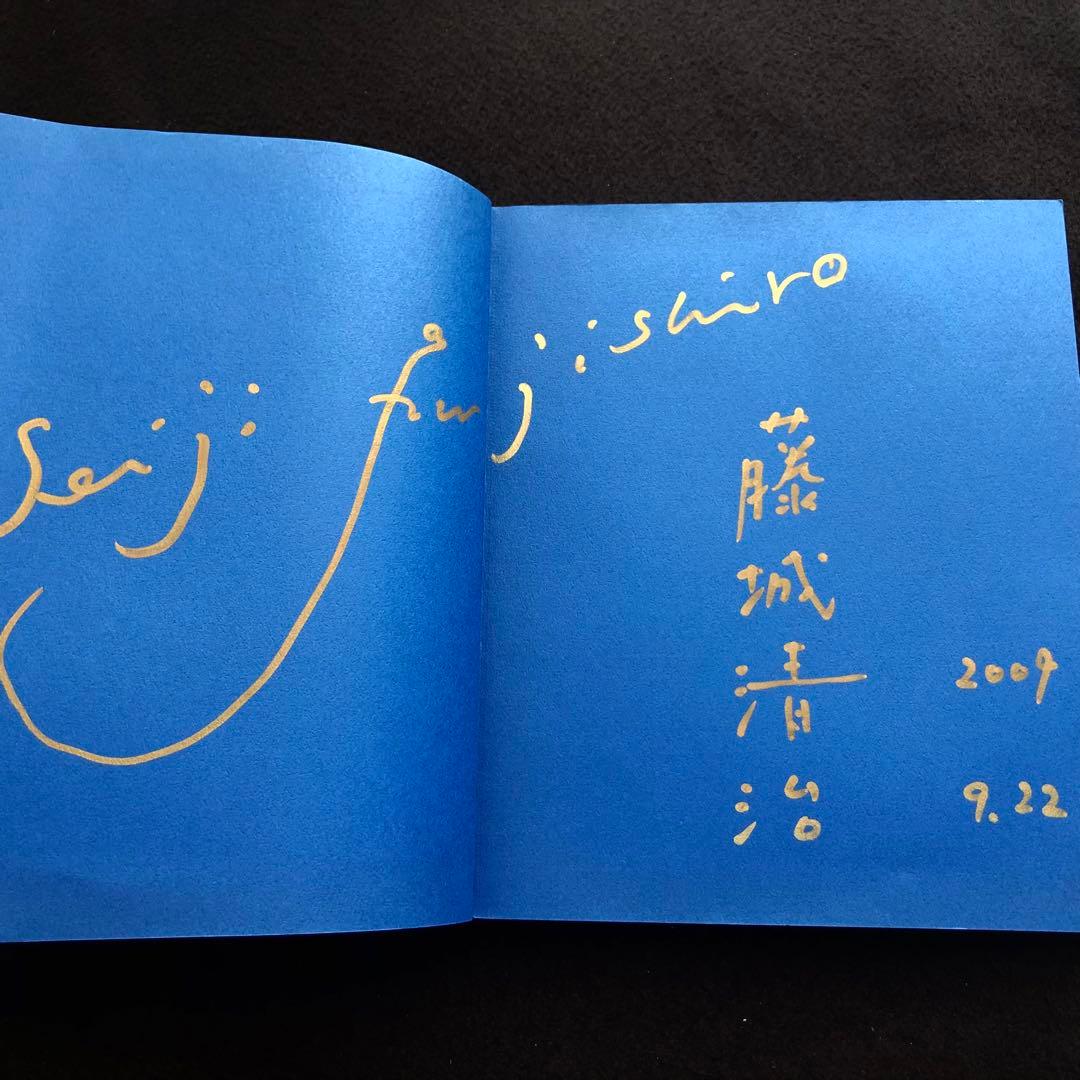 Seiji Fujishiro
藤城清治
2009
9.22